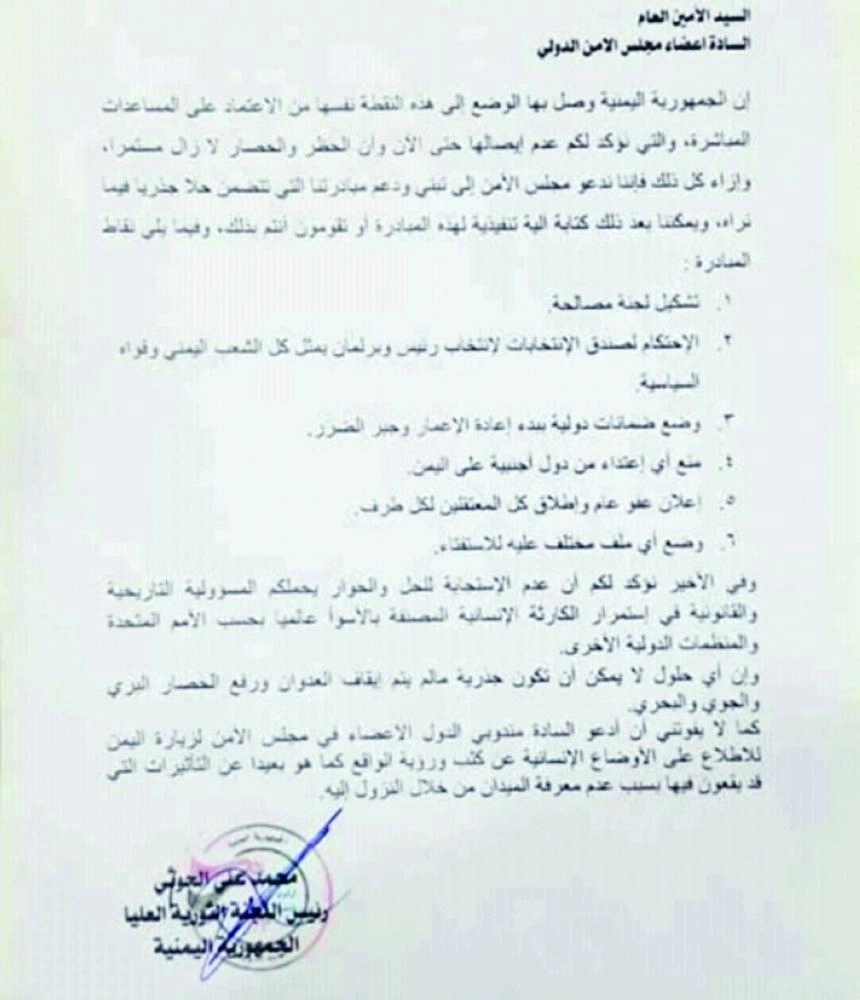 السيد الأمين العام
السادة اعضاء مجلس الامن الدولي
إن الجمهورية اليمنية وصل بها الوضع إلى هذه النقطة نفسها من الاعتماد على المساعدات
المباشرة، والتي نؤكد لكم عدم إيصالها حتى الآن وأن الحظر والحصار لا زال مستمرا،
وإزاء كل ذلك فإننا ندعو مجلس الأمن إلى تبني ودعم مبادرتنا التي تتضمن حلا جذريا فيما
نراه، ويمكننا بعد ذلك كتابة الية تنفيذية لهذه المبادرة أو تقومون أنتم بذلك، وفيما يلي نقاط
المبادرة :
١. تشكيل لجنة مصالحة.
٢. الإحتكام لصندق الإنتخابات لإنتخاب رئيس وبرلمان يمثل كل الشعب اليمني وقواه
السياسية.
٣. وضع ضمانات دولية ببدء إعادة الاعمار وجبر الضرر.
٤. منع أي إعتداء من دول أجنبية على اليمن.
٥. إعلان عفو عام وإطلاق كل المعتقلين لكل طرف.
٦. وضع أي ملف مختلف عليه للاستفتاء.
وفي الأخير نؤكد لكم أن عدم الإستجابة للحل والحوار يحملكم المسؤولية التاريخية
والقانونية في إستمرار الكارثة الإنسانية المصنفة بالأسوأ عالميا بحسب الأمم المتحدة
والمنظمات الدولية الأخرى.
وإن أي حلول لا يمكن أن تكون جذرية مالم يتم إيقاف العدوان ورفع الحصار البري
والجوي والبحري.
كما لا يفوتني أن أدعو السادة مندوبي الدول الاعضاء في مجلس الأمن لزيارة اليمن
للاطلاع على الأوضاع الإنسانية عن كثب ورؤية الواقع كما هو بعيدا عن التأثيرات التي
قد يقعون فيها بسبب عدم معرفة الميدان من خلال النزول إليه.
محمد علي الحوثي
رئيس اللجنة الثورية العليا
الجمهورية اليمنية